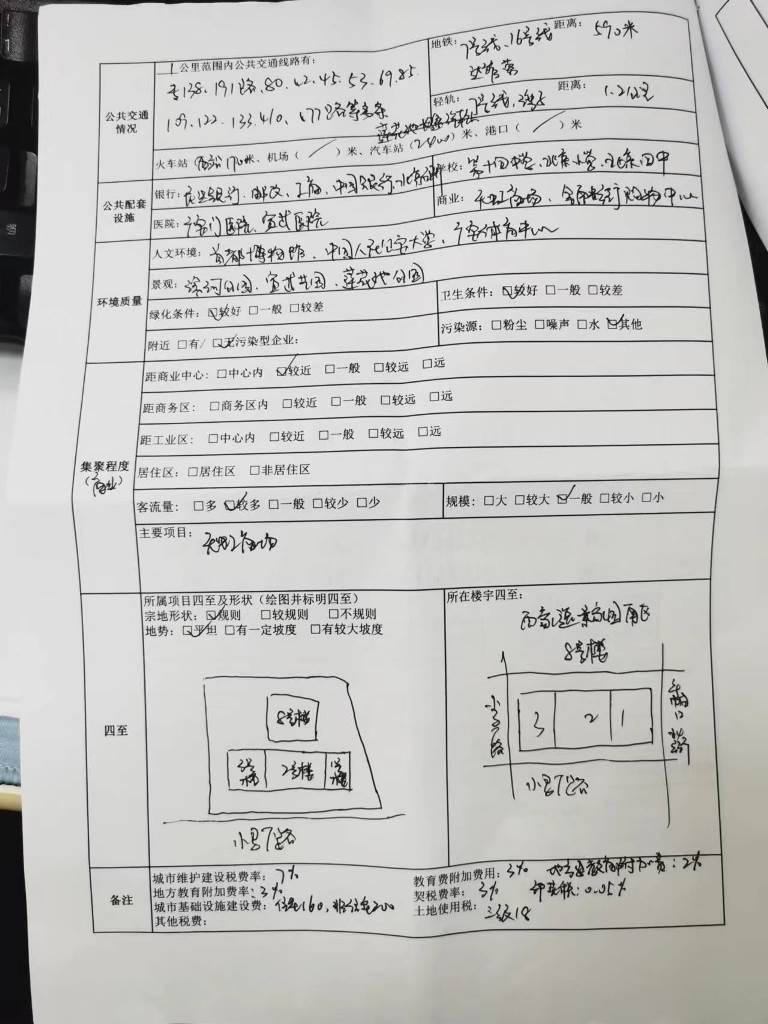 1公里范围内公共交通线路有:
专138、191路、80、42、45、53、69、85
109、122、133、410、677路等多条
地铁: 7号线、16号线 距离: 590米
达官营
轻轨: 7号线 距离: 1.2公里
公共交通情况
火车站 西站170米、机场( / )米、汽车站( )米、港口( / )米
公共配套设施
银行: 农业银行、邮政、工商、中国银行、北京银行
学校: 第十四中学、北京小学、北京四中
医院: 广安门医院、宣武医院
商业: 天虹商场、购物中心
环境质量
人文环境: 首都博物馆、中国人民公安大学、广安体育中心
景观: 公园、宣武艺园、莲花池公园
绿化条件: ☑较好 □一般 □较差
卫生条件: ☑较好 □一般 □较差
附近 □有/ ☑无污染型企业:
污染源: □粉尘 □噪声 □水 ☑其他
集聚程度
(商业)
距商业中心: □中心内 ☑较近 □一般 □较远 □远
距商务区: □商务区内 □较近 □一般 □较远 □远
距工业区: □中心内 □较近 □一般 □较远 □远
居住区: □居住区 □非居住区
客流量: □多 ☑较多 □一般 □较少 □少
规模: □大 □较大 ☑一般 □较小 □小
主要项目:
天虹商场
四至
所属项目四至及形状(绘图并标明四至)
宗地形状: ☑规则 □较规则 □不规则
地势: ☑平坦 □有一定坡度 □有较大坡度
8号楼
2号楼
小马厂路
所在楼宇四至:
8号楼
3 2 1
小马厂路
备注
城市维护建设税费率: 7%
教育费附加费用: 3% 地方教育附加费: 2%
地方教育附加费率: 3%
契税费率: 3% 印花税: 0.05%
城市基础设施建设费: 住宅160, 非住宅200
土地使用税: 三级18
其他税费: